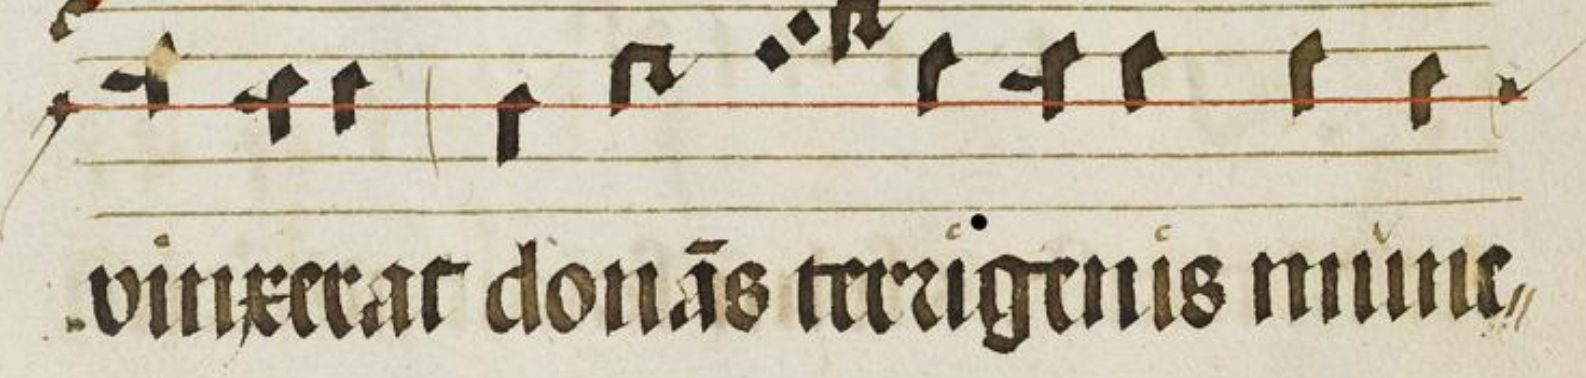 vinxerat donās terrigenis mune